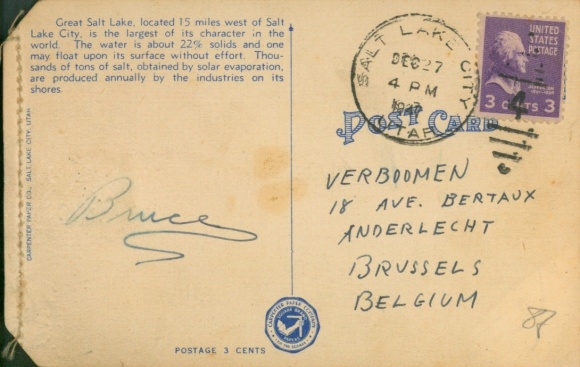 Great Salt Lake, located 15 miles west of Salt
Lake City, is the largest of its character in the
world. The water is about 22% solids and one
may float upon its surface without effort. Thou-
sands of tons of salt, obtained by solar evaporation,
are produced annually by the industries on its
shores.
CARPENTER PAPER CO., SALT LAKE CITY, UTAH
Bruce
POSTAGE 3 CENTS
SALT LAKE CITY
DEC 27
4 PM
UTAH
UNITED
STATES
POSTAGE
3 CENTS 3
POST CARD
VERBOOMEN
18 AVE. BERTAUX
ANDERLECHT
BRUSSELS
BELGIUM
87